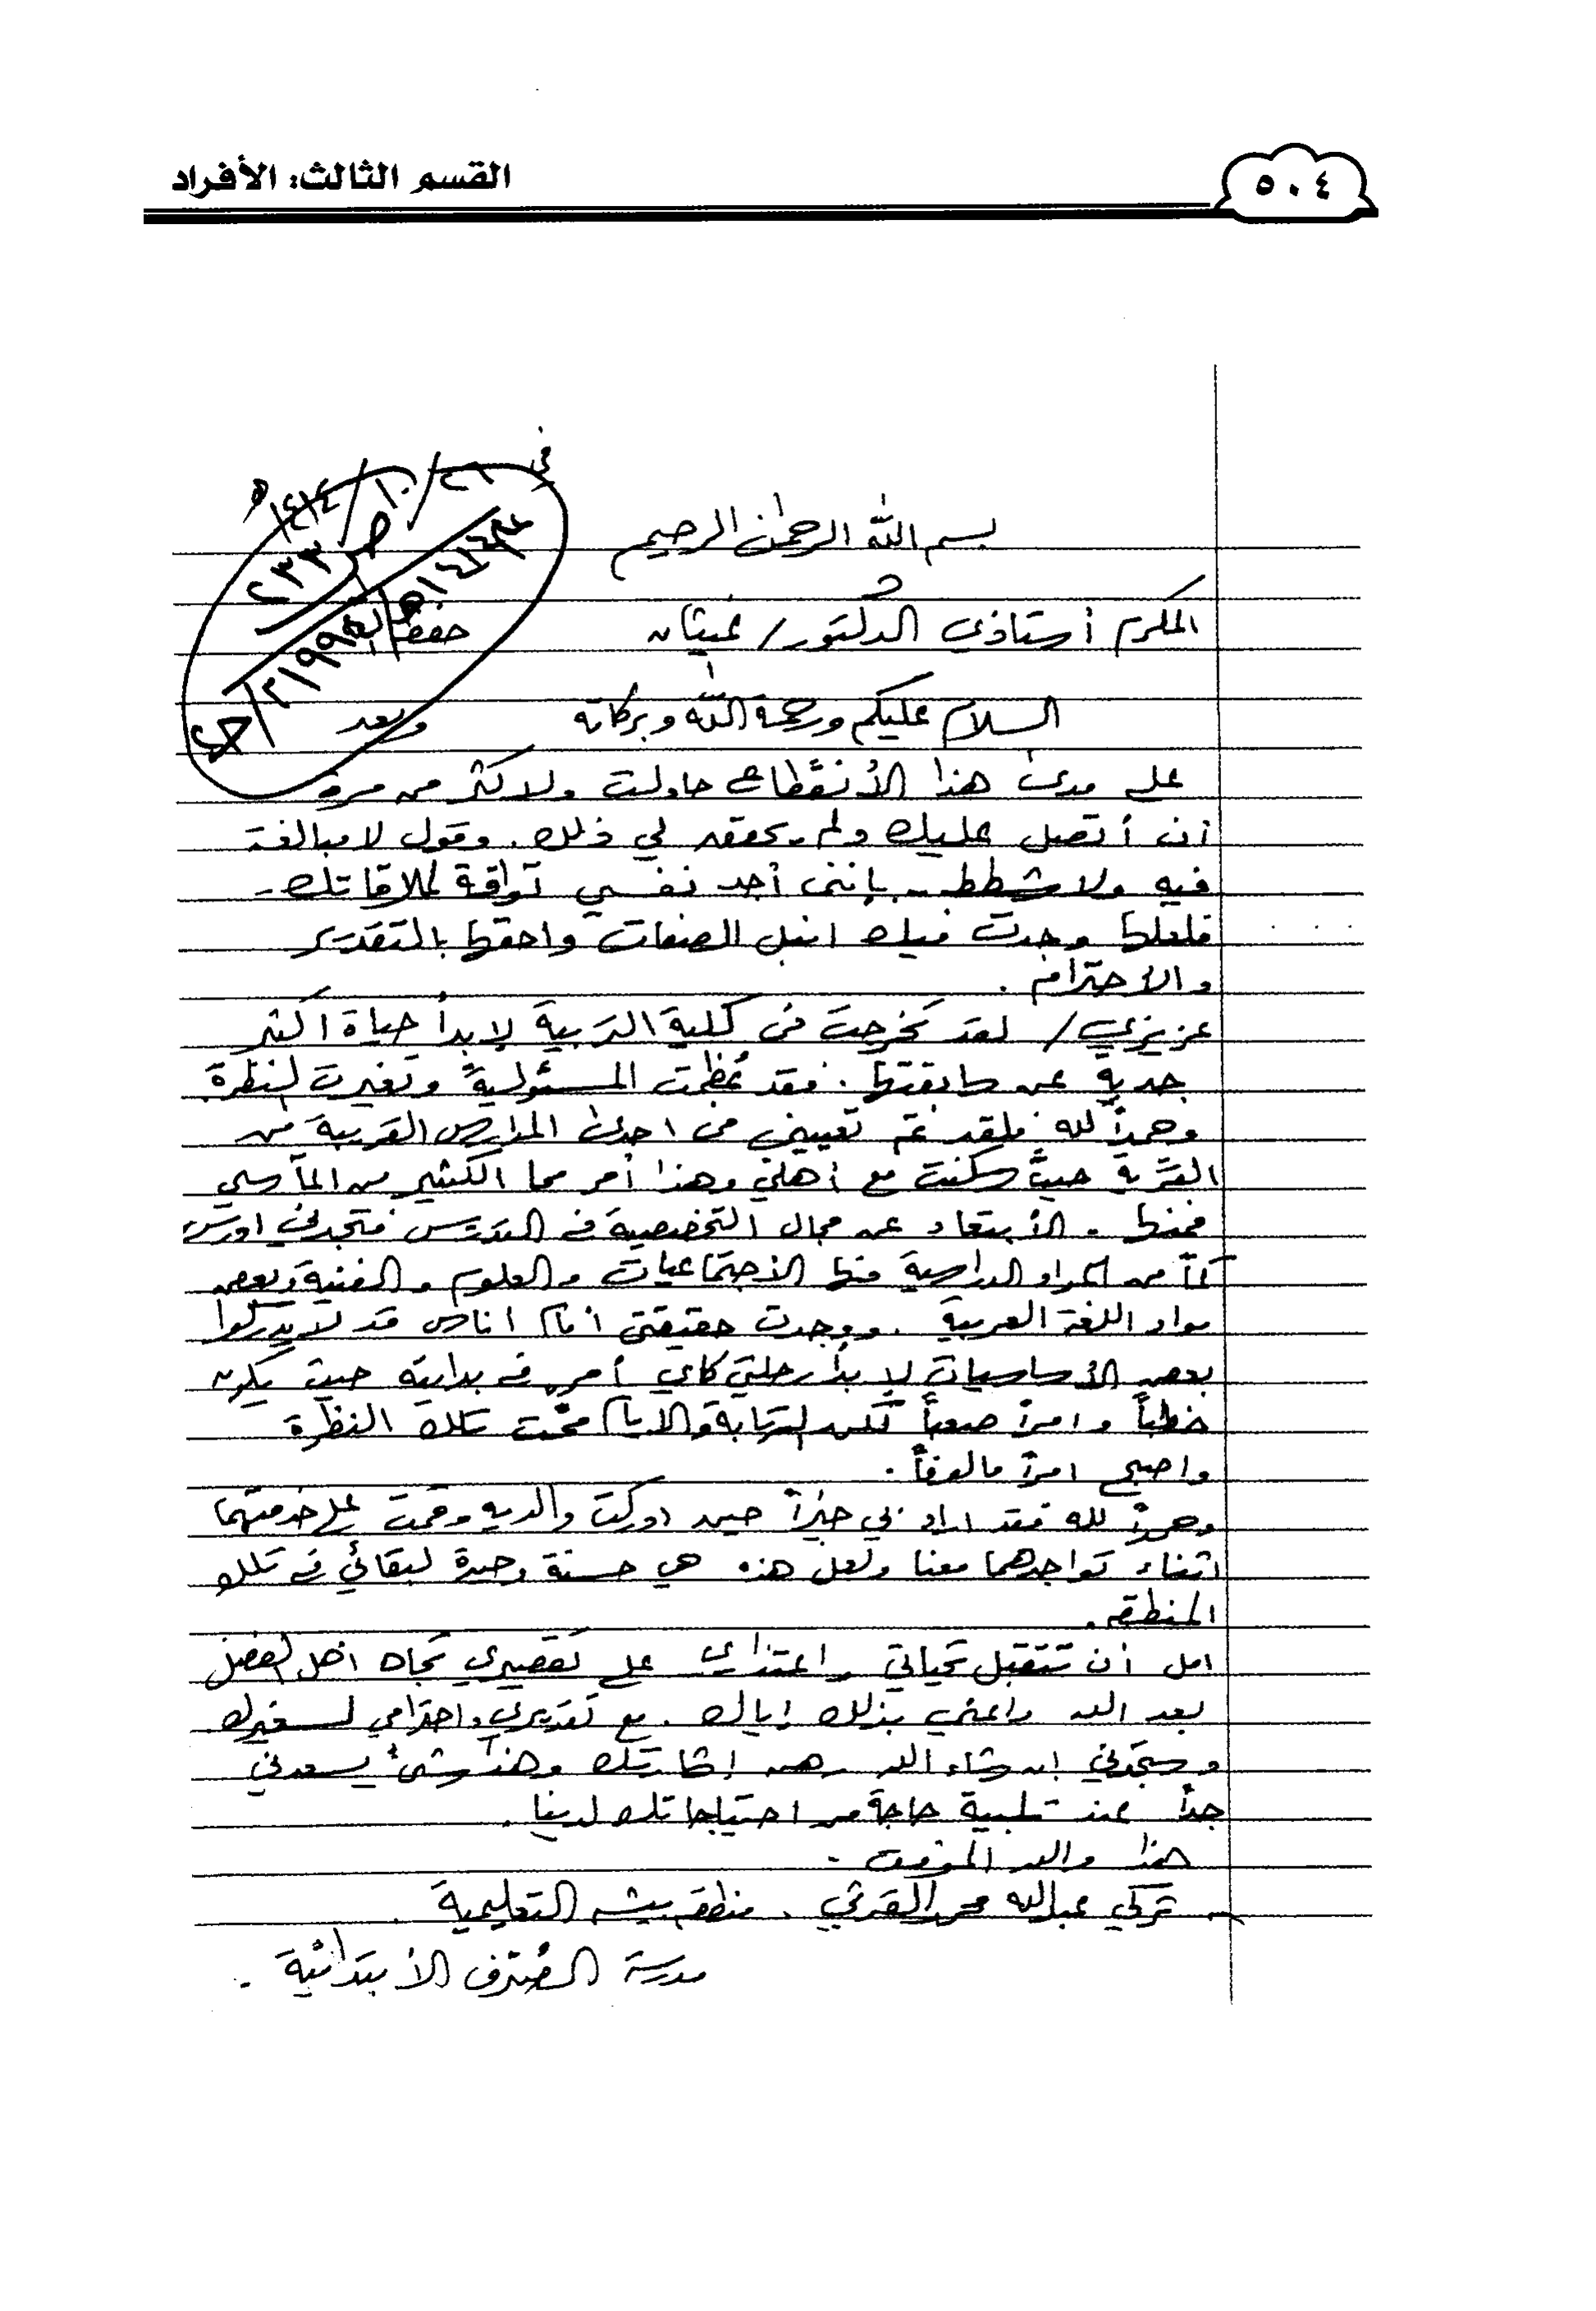 القسم الثالث: الأفراد
٥٠٤
في ٢٦/١٠/١٤١٤هـ
ص ٢٣٣
بسم الله الرحمن الرحيم
المكرم أستاذي الدكتور/ غيثان حفظه الله
السلام عليكم ورحمة الله وبركاته وبعد
على مدى هذا الأنقطاع حاولت ولاكثر من مرة
أن أتصل عليك ولم يتحقق لي ذلك. وقول لا مبالغة
فيه ولا شطط - بإنني أجد نفسي تواقة لملاقاتك -
فلعلها وجدت فيك انبل الصفات واحقها بالتقدير
والأحترام.
عزيزي/ لقد تخرجت من كلية التربية لإبدأ حياة اكثر
جدية عن سابقتها. فقد عظمت المسئولية وتغيرت النظرة.
وحمداً لله فلقد تم تعييني في احدى المدارس القريبة من
القرية حيث سكنت مع أهلي وهذا أمر محا الكثير من المآسي
فمنها - الأبتعاد عن مجال التخصصية في التدريس فتجدني ادرس
كماً من المواد الدراسية منها الأجتماعيات والعلوم والفنية وبعض
مواد اللغة العربية. ووجدت حقيقتي أمام اناس قد لا يدركوا
بعض الأساسيات لإبدأ رحلتي كاي أمر في بدايته حيث يكون
خطباً وامراً صعباً لكن الرتابة والايام محت تلك النظرة
واصبح امراً مالوفاً.
وحمداً لله فقد اراد بي خيراً حين ادركت والديه وقمت على خدمتهما
اثناء تواجدهما معنا ولعل هذه هي حسنة وحيدة لبقائي في تلك
المنطقة.
امل أن تتقبل تحياتي واعتذاري على تقصيري تجاه اهل الفضل
بعد الله واعني بذلك إياك. مع تقديري واحترامي لسخيرك
وستجدني ان شاء الله رهن إشارتك وهذا شئ يسعدني
جداً عند تلبية حاجة من احتياجاتك لدينا.
هذا والله الموفق -
تركي عبدالله محمد القرني. منطقة بيشه التعليمية.
مدرسة الأبتدائية.